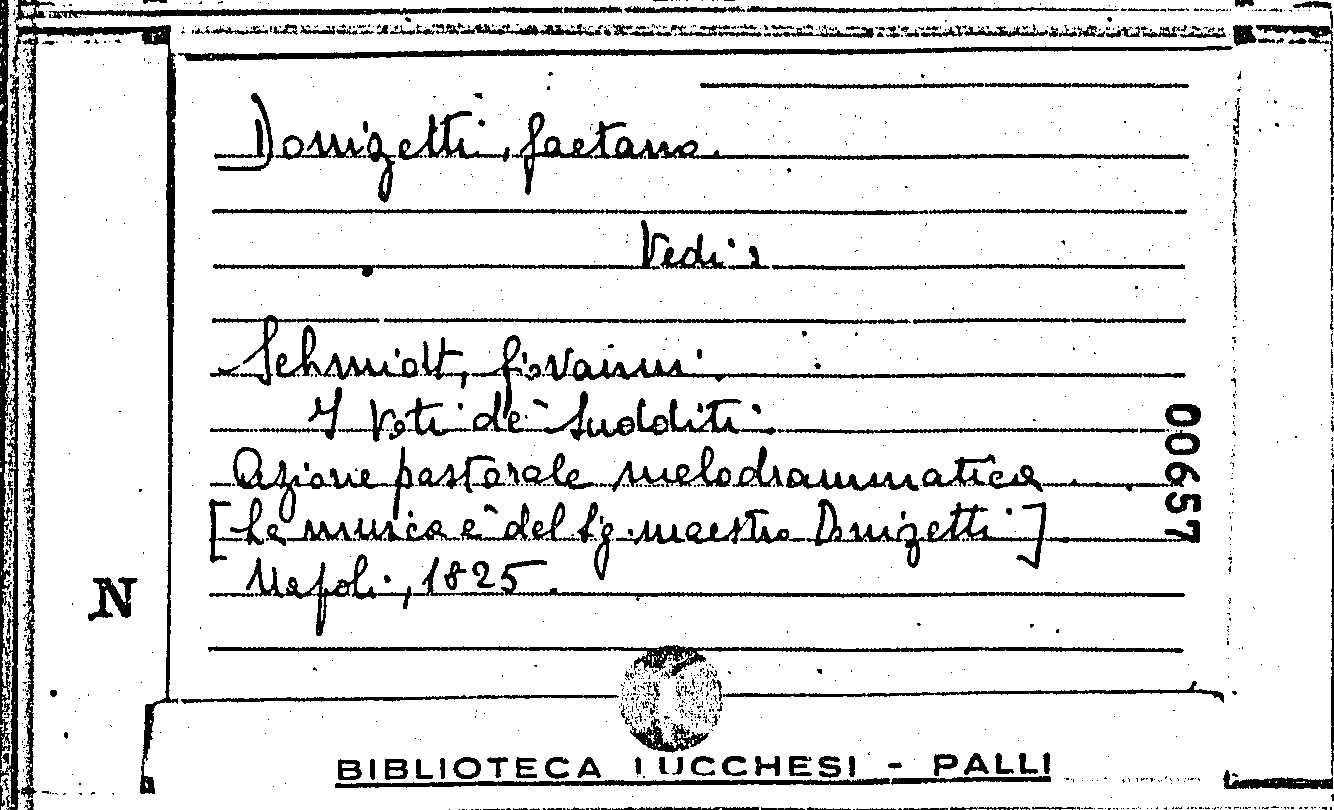 Donizetti, Gaetano.
Vedi:
Schmidt, Giovanni.
I Voti de' Sudditi.
Azione pastorale melodrammatica . .
[La musica è del Sig. maestro Donizetti].
Napoli, 1825.
00657
N
BIBLIOTECA LUCCHESI - PALLI